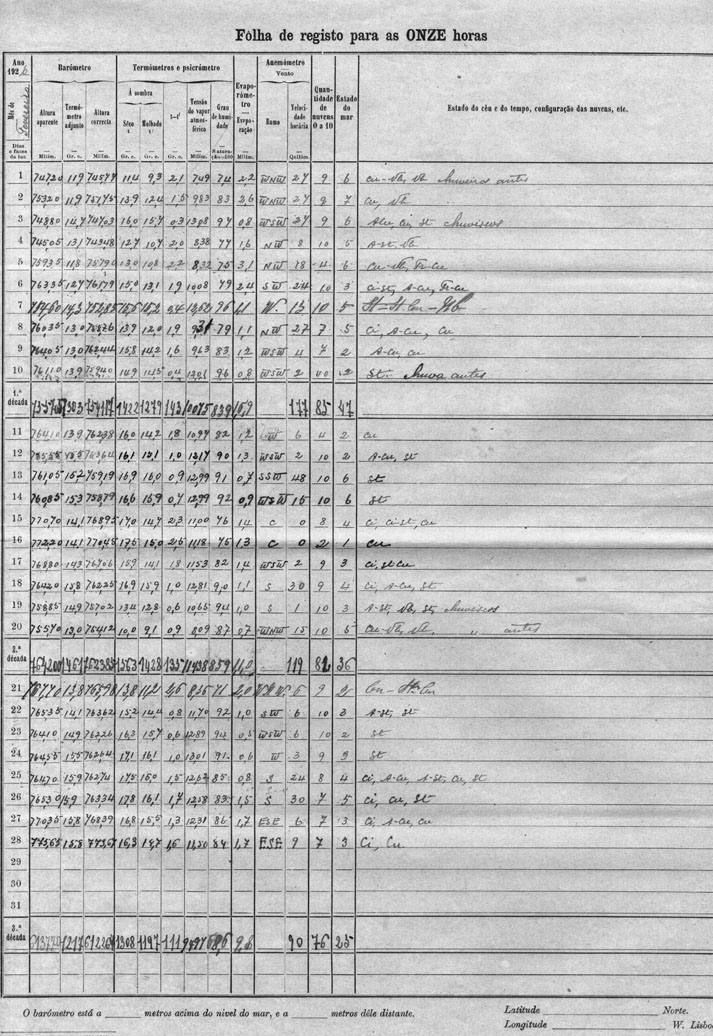 Fôlha de registo para as ONZE horas
Ano 1926
Mês de Fevereiro
Dias e fases da lua
Barómetro
Altura aparente Milím.
Termómetro adjunto Gr. c.
Altura correcta Milím.
Termómetros e psicrómetro
À sombra
Sêco t Gr. c.
Molhado t' Gr. c.
t-t'
Tensão do vapor atmosférico Milím.
Grau de humidade
Evaporómetro Evaporação Milím.
Anemómetro
Vento
Rumo
Velocidade horária Quilóm.
Quantidade de nuvens 0 a 10
Estado do mar
Estado do céu e do tempo, configuração das nuvens, etc.
1 747,20 11,9 745,77 11,4 9,3 2,1 7,49 74 2,2 WNW 27 9 6 cu-nb, nb chuveiros antes
2 753,20 11,9 13,9 12,4 1,5 9,83 83 2,6 WNW 27 8 7 cu, nb
3 748,80 14,7 747,03 16,0 15,7 0,3 97 0,8 WSW 27 9 6 st chuviscos
4 745,05 13,1 743,48 12,7 10,7 2,0 8,38 77 1,6 NW 8 10 5 A-st, nb
5 759,35 11,8 757,90 13,0 10,8 2,2 8,32 75 3,1 NW 18 4 6 cu-nb, Fr-cu
6 763,35 12,7 761,79 15,0 13,1 1,9 10,08 79 2,4 SW 24 10 3 ci-st, A-cu, Fr-cu
7 14,3 96 1,1 W. 13 10 5
8 760,35 13,0 13,9 12,0 1,9 79 1,1 NW 27 7 5 Ci, A-cu, cu
9 764,05 13,0 762,44 15,8 14,2 1,6 9,63 83 1,2 WSW 4 7 2 A-cu, cu
10 761,10 13,9 759,40 14,9 14,5 0,4 96 0,8 WSW 2 10 2 St. chuva antes
1.ª década 130,3 142,2 127,9 14,3 839 16,9 177 85 47
11 764,10 13,9 762,38 16,0 14,2 1,8 10,97 82 1,2 6 4 2 cu
12 16,1 15,1 1,0 90 1,3 WSW 2 10 2 A-cu, st
13 761,05 15,2 759,19 16,9 16,0 0,9 12,99 91 0,7 SSW 48 10 6 st
14 760,85 15,3 758,79 16,6 15,9 0,7 12,99 92 0,9 WSW 15 10 6 St
15 770,70 14,1 768,92 17,0 14,7 2,3 11,00 76 1,4 C 0 8 4 ci, ci-st, cu
16 772,20 14,1 770,45 17,5 15,0 2,5 11,18 75 1,3 C 0 2 1 cu
17 768,80 14,3 767,06 15,9 14,1 1,8 11,53 82 1,4 WSW 2 9 3 Ci, st-cu
18 764,20 15,8 762,25 16,9 15,9 1,0 12,81 90 1,1 S 30 9 4 Ci, A-cu, St
19 758,85 14,9 757,02 13,4 12,8 0,6 10,65 94 1,0 S 1 10 3 A-st, nb, st, chuviscos
20 755,70 13,0 754,12 10,0 9,1 0,9 8,09 87 0,7 WNW 15 10 5 cu-nb, nb, „ antes
2.ª década 146,1 156,3 142,8 13,5 114,38 859 11,0 119 82 36
21 767,70 13,8 765,98 13,8 11,2 2,6 8,26 71 2,0 6 9 2 Cu-St-Cu
22 765,35 14,1 763,62 15,2 14,4 0,8 11,70 92 1,0 SW 6 10 3 A-st, st
23 764,10 14,9 762,26 16,3 15,7 0,6 12,89 94 0,5 WSW 6 10 2 St
24 764,55 15,5 762,64 17,1 16,1 1,0 13,01 91 0,6 W 3 9 3 St
25 764,70 15,9 762,74 17,5 16,0 1,5 12,62 85 0,8 S 24 8 4 Ci, A-cu, A-st, cu, st
26 765,30 15,9 763,34 17,8 16,1 1,7 12,58 83 1,5 S 30 7 5 ci, cu, St
27 770,35 15,8 768,39 16,8 15,5 1,3 12,31 86 1,7 ESE 6 7 3 Ci, A-cu, cu
28 775,65 15,8 773,67 16,3 14,7 1,6 11,50 84 1,7 ESE 9 7 3 Ci, Cu
29
30
31
3.ª década 121,7 130,8 119,7 11,1 9,6 90 76 25
O barómetro está a ______ metros acima do nivel do mar, e a ______ metros dêle distante.
Latitude ______ Norte.
Longitude ______ W. Lisbo